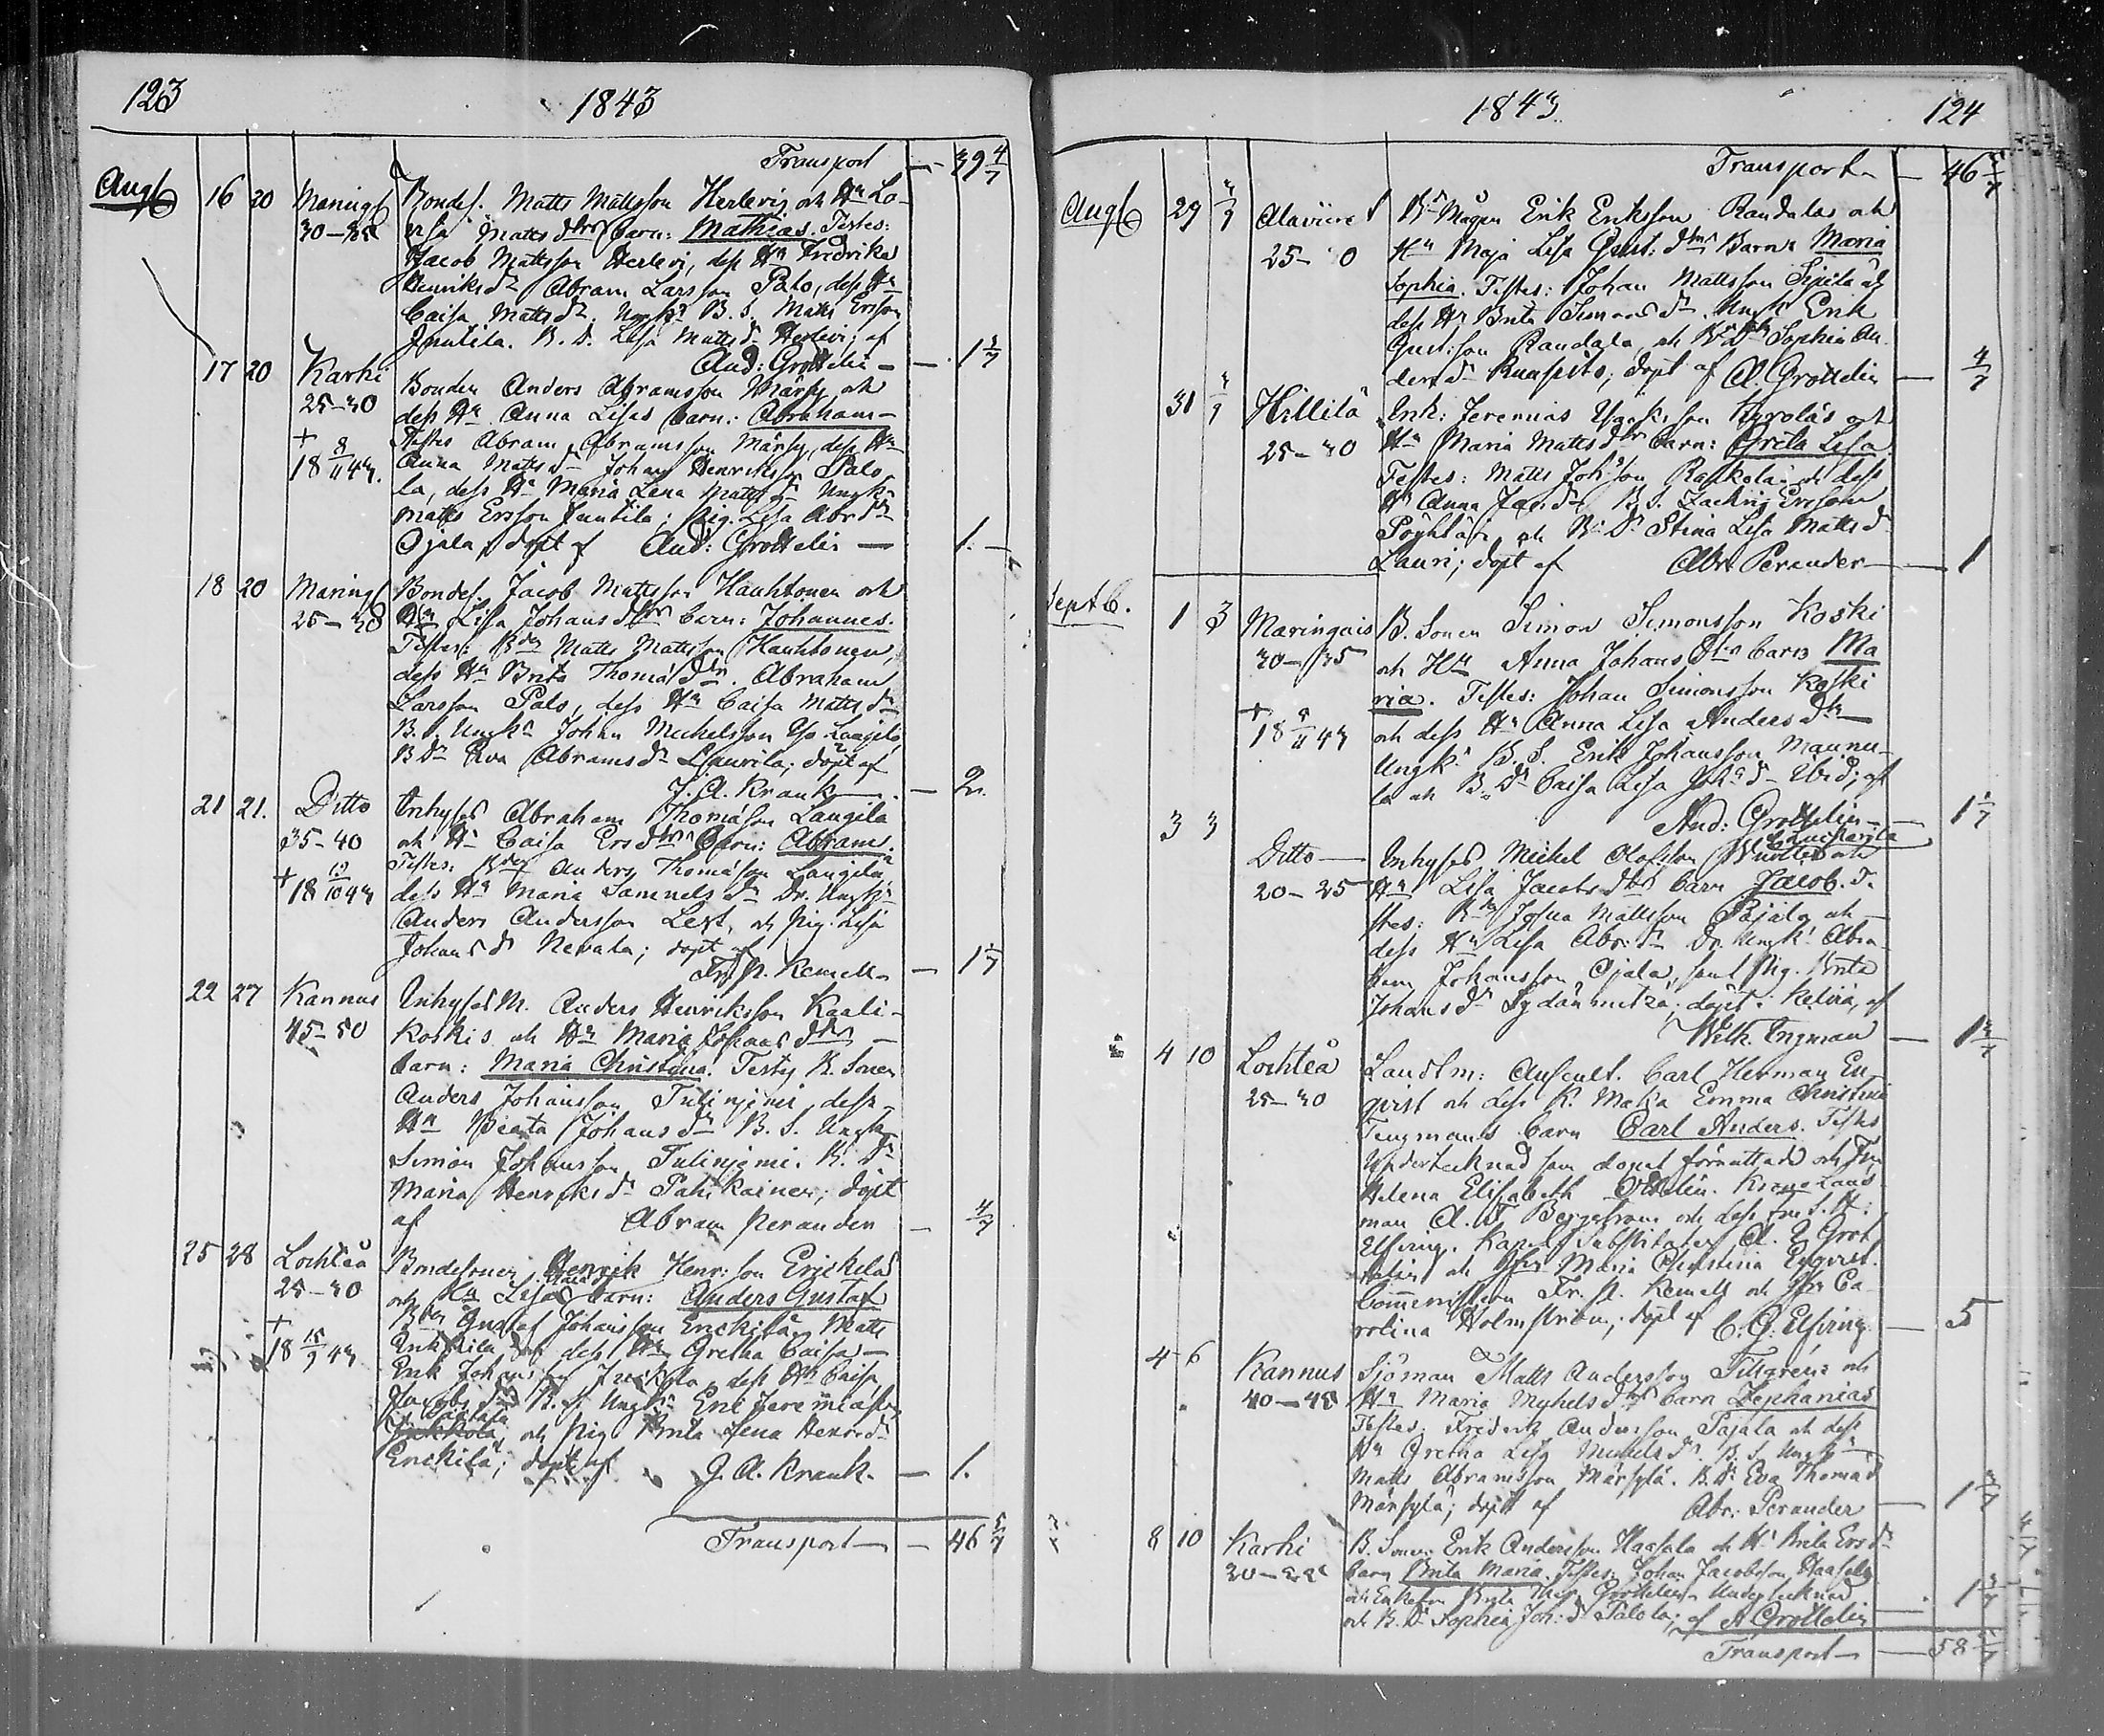 123
1843
Transport — 39 4/7
Aug
16 20 Marings Bondes. Matts Mattsson Herlevis och Hu Lo-
30–35 visa Matts dtrs barn: Mathias. Testes:
Jacob Mattsson Herlevi, dess Hu Fredrika
Henriksdr Abram Larsson Palo, dess Hu
Caisa Mattsdr. Ungk. B. S. Matts Ersson
Juntila. B. D. Lisa Mattsd. Herlevi; af
And: Grottelin —
17 20 Karhi Bonden Anders Abramsson Märsy och
25–30 dess Hu Anna Lisas barn: Abraham —
+ Testes Abram Abramsson Märsy, dess Hu
18 8/11 43. Anna Mattsd. Johan Henriksson Palo
la, dess Hu Maria Lena Mattsdr Ungk.
Matts Ersson Juntila; pig. Lisa Abrdr
Ojala, döpt af And: Grottelin — 1. —
18 20 Marings Bondes. Jacob Mattsson Hauhtonen och
25–30 Hu Lisa Johans dtrs barn: Johannes.
Testes: Bden Matts Mattsson Hauhtonen,
dess Hu Brita Thomas dr. Abraham
Larsson Palo, dess Hu Caisa Mattsdr
B. S. Ungk. Johan Michelsson Yso Laugilo,
B Dr Eva Abramsdr Laurila; döpt af
J. A. Krank — 2.
21 21. Ditto Inhyses Abraham Thomasson Laugila
35–40 och Hu Caisa Ersdtrs Barn: Abram.
Testes: Bden Anders Thomasson Laugila
+ 18 13/10 43 dess Hu Maria Samuelsdr Dr. Ungk.
Anders Andersson Lest, och pig. Lisa
Johansdr Nevala; döpt af
Fr. P. Kemell — 1
22 27 Kannus Inhyses M. Anders Henriksson Kaali-
45–50 koskis och Hu Maria Johans dtrs —
barn: Maria Christina. Testes B. Sonen
Anders Johansson Tulinjemi, dess
Hu Beata Johans dr B. S. Ungk.
Simon Johansson Tulinjemi. B. Dr
Maria Henriks dr Pahikainen; döpt
af Abram Perander — 4/7
25 28 Lochteå Bondesonen Henrik Henr:son Erickilas
25–30 och Hu Lisas barn: Anders Gustaf
+ Bden Gustaf Johansson Erickilä Matts
18 15/9 43 dess Hu Gretha Caisa —
Erik Johansson dess Hu Caisa
Jacobs dr B. S. Ungk. Eric Jeremiasson
och pig Brita Lena Henrsdr
Erickilä; döpt af J. A. Krank. — 1.
Transport — 46 5/7
1843
124
Transport — 46 5/7
Aug
29 3/9 Alaviirre Bds Mågen Erik Eriksson Randalas och
25–30 Hu Maja Lisa Gust. dtrs Barn Maria
Sophia. Testes: Johan Mattsson Sipilä och
dess Hu Brita Simonsdr. Ungk. Erik
Gust:son Randala, och B. Dr Sophia An-
dersdr Ruuspito; döpt af A. Grottelin — 4/7
31 3/9 Hillilä Enk: Jeremias Kyroläs och
25–30 Hu Maria Matts dtrs barn: Greta Lisa.
Testes: Matts Joh:son Raskola och dess
Hu Anna Jacdr B. S. Zachris Ersson
Pöyhtäri, och B. D. Stina Lisa Mattsd
Lauri; döpt af Abr. Perander — 1
Septb.
1 3 Maringais B. Sonen Simon Simonsson Koski
30–35 och Hu Anna Johans dtrs barn Ma
ria. Testes: Johan Simonsson Koski
+ 18 9/11 43 och dess Hu Anna Lisa Andersdr —
Ungk. B. S. Erik Johansson Maunu-
la och B. Dr Caisa Lisa Joh:sdr Ibid; af
And: Grottelin — 1
3 3 Ditto — Inhyses Mickel Olofsson och
20–25 Hu Lisa Jacobs dtrs barn Jacob. Te-
stes: Bden Josua Mattsson Pajala och —
dess Hu Lisa Abr:dr Dr. Ungk. Abra-
ham Johansson Ojala, samt Pig. Brita
Johansdr Sydänmetza; döpt i Kelviä, af
Wilh. Engman — 1
4 10 Lochteå Landtm: Auscult. Carl Herman En-
25–30 qvist och dess K. Maka Emma Christina
Tengmans barn Carl Anders. Testes
Undertecknad som dopet förrättade och Fru
Helena Elisabeth Krono Läns-
man A. W. Bergstrom och dess fru S. H:
Elfving. Kapells Substituten A. E. Grot-
telin och Jfru Maria Christina Enqvist.
Comministern Fr. P. Kemell och Jfru Ca-
rolina Holmström; döpt af C. G. Elfving. — 5
4 6 Kannus Sjöman Matts Andersson Tillgrens och
40–45 Hu Maria Michels dtrs barn Zephanias
Testes: Fredrik Andersson Pajala och dess
Hu Gretha Lisa Michelsdr. B. S. Ungk. —
Matts Abramsson Märsylä. B. Dr Eva Thomasd
Märsylä; döpt af Abr: Perander — 1
8 10 Karhi B. Sonen Erik Andersson Haasala och Hu Brita Ersdr
30–35 barn Brita Maria. Testes: Johan Jacobsson Haasala
och Enkefru Brita Grottelin Undertecknad
och B. Dr Sophia Joh:dr Palola; af A Grottelin — 1
Transport — 58